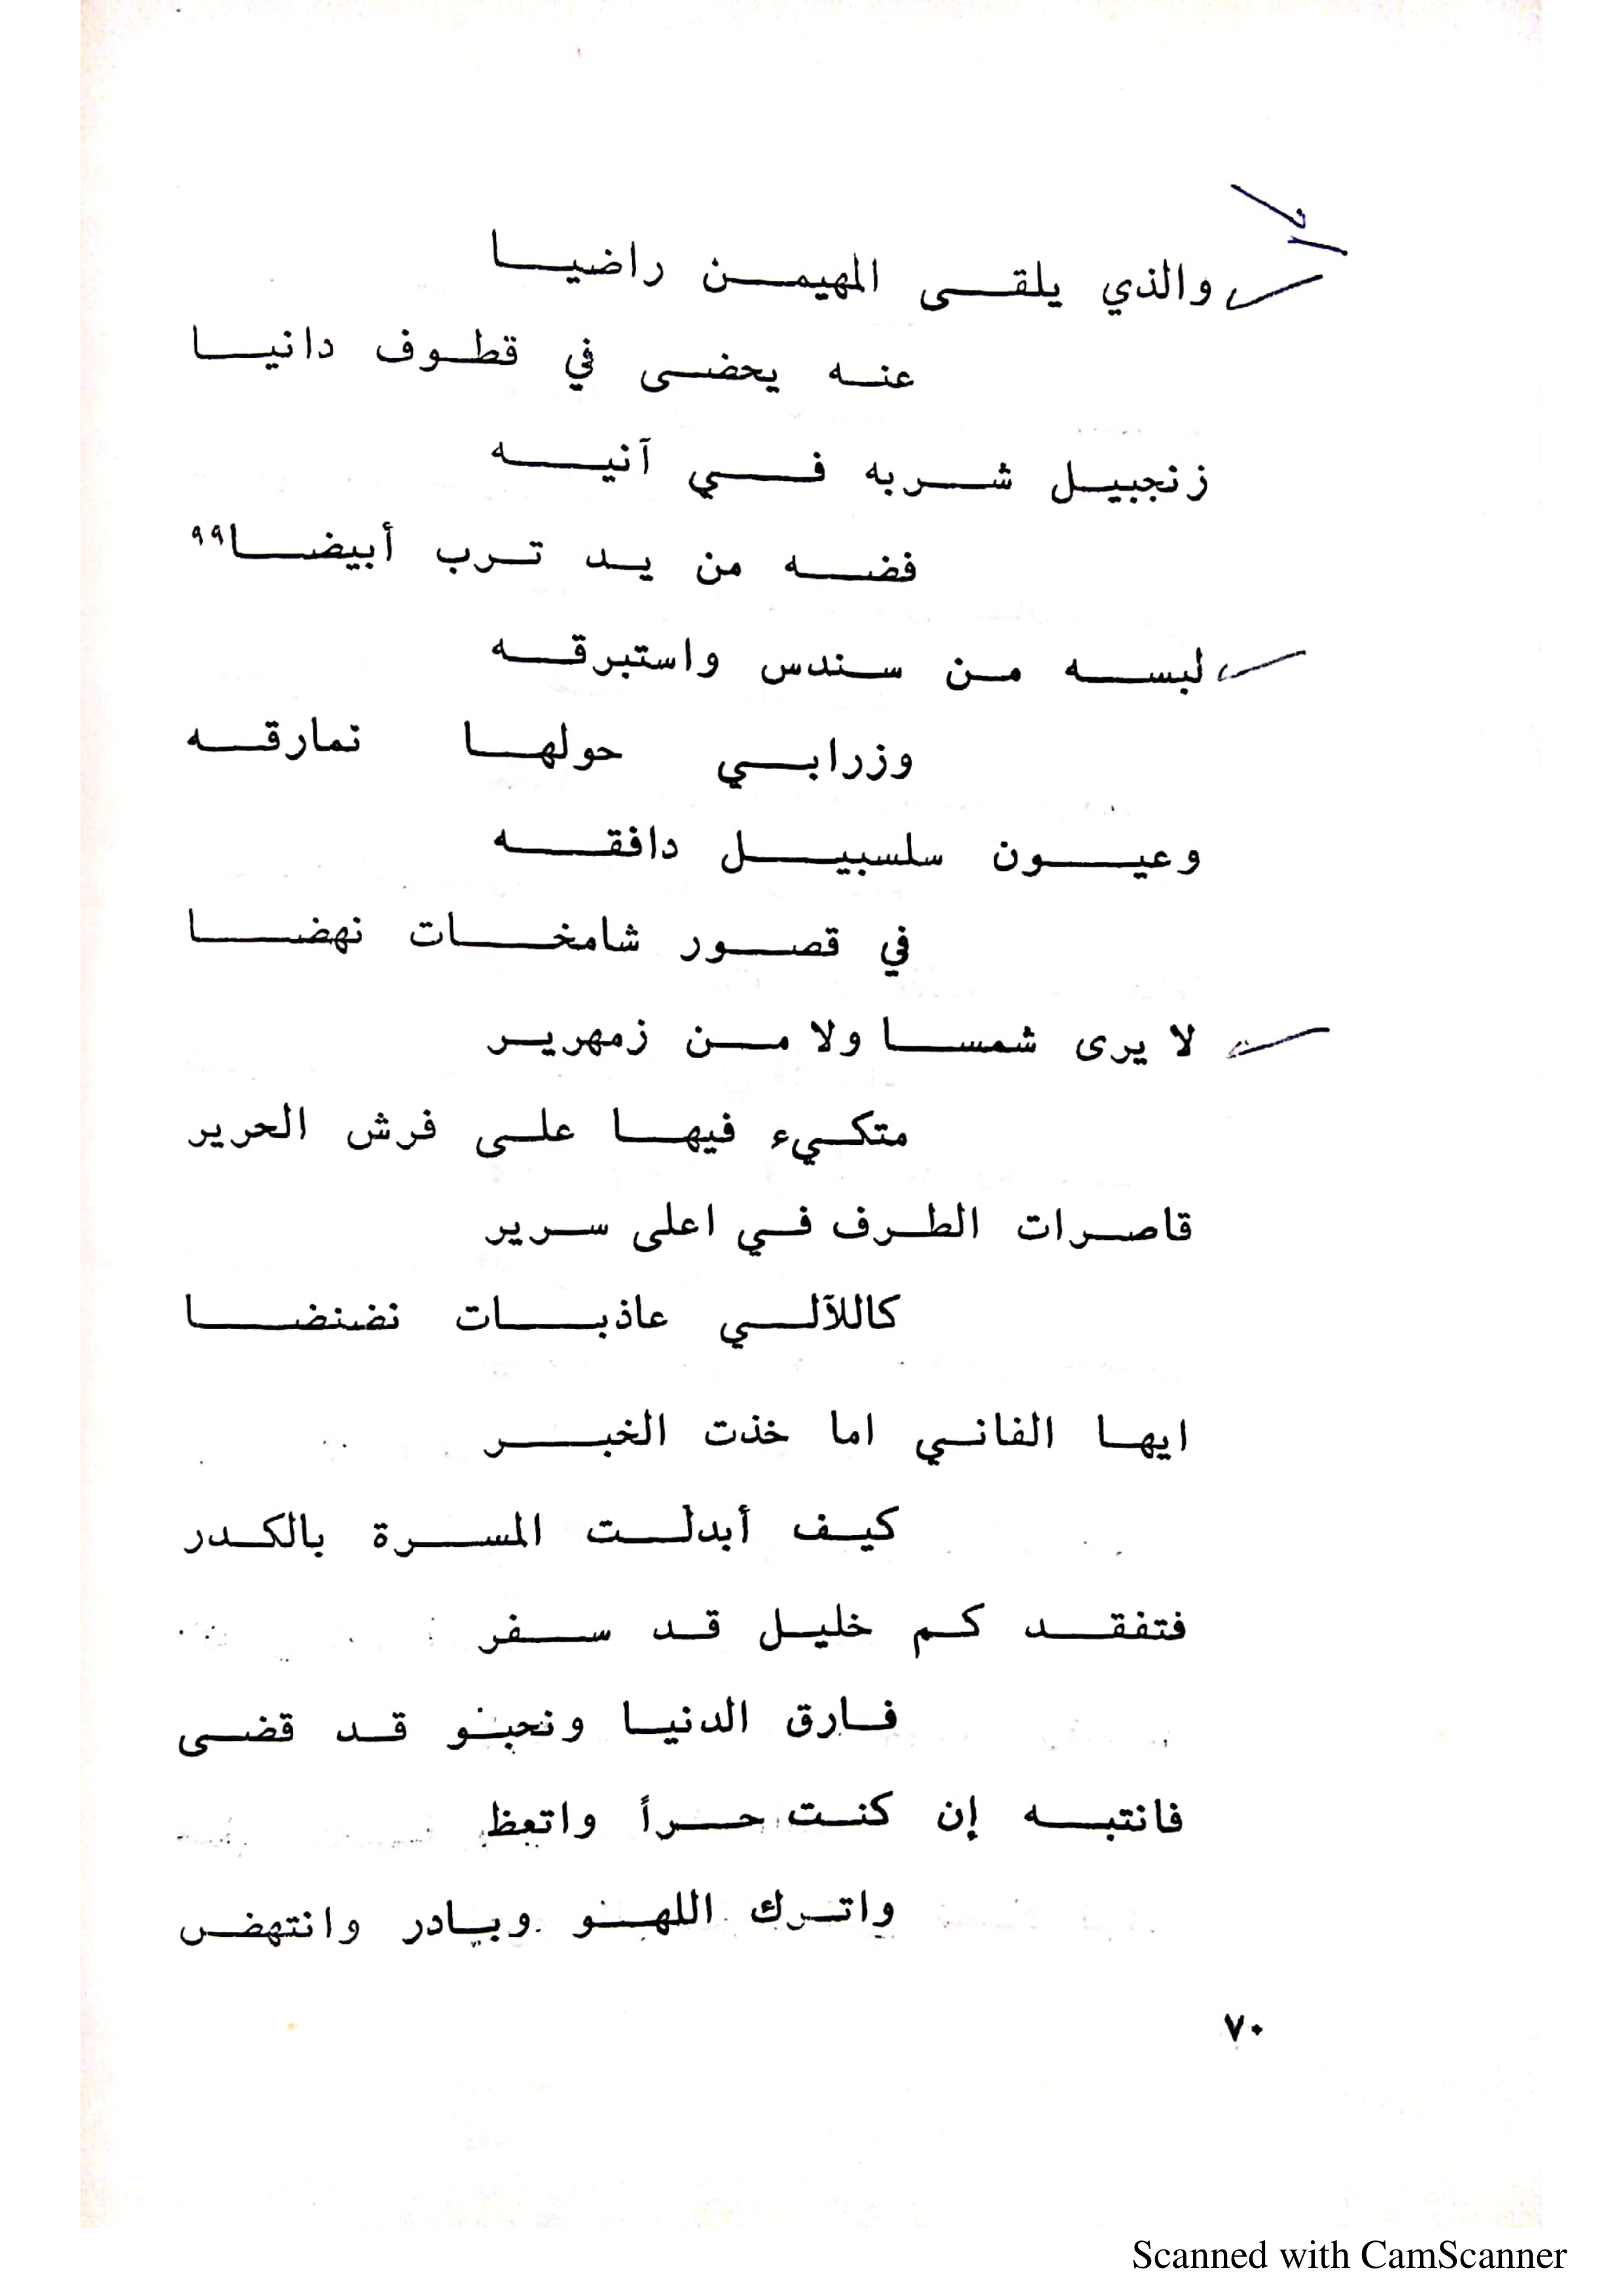 والذي يلقى المهيمن راضيا
عنه يحضى في قطوف دانيا
زنجبيل شربه في آنيه
فضه من يد ترب أبيضا٩٩
لبسه من سندس واستبرقه
وزرابي حولها نمارقه
وعيون سلسبيل دافقه
في قصور شامخات نهضا
لا يرى شمسا ولا من زمهرير
متكيء فيها على فرش الحرير
قاصرات الطرف في اعلى سرير
كاللآلي عاذبات نضنضا
ايها الفاني اما خذت الخبر
كيف أبدلت المسرة بالكدر
فتفقد كم خليل قد سفر
فارق الدنيا ونحبو قد قضى
فانتبه إن كنت حراً واتعظ
واترك اللهو وبادر وانتهض
٧٠
Scanned with CamScanner